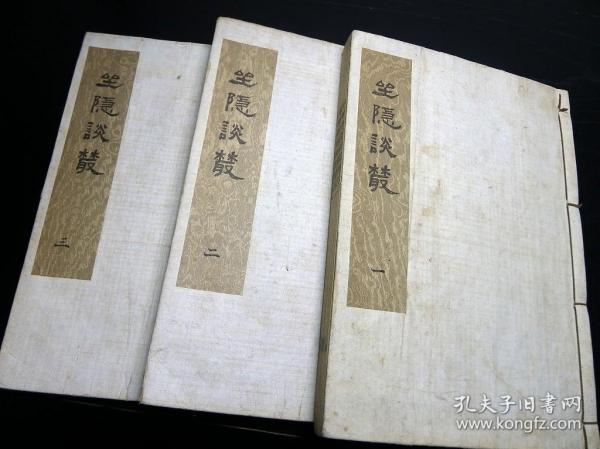 坐隱談叢
三
坐隱談叢
二
坐隱談叢
一
孔夫子旧書网
www.kongfz.com